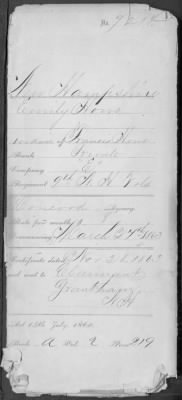 No. 9218
New Hampshire
Emily Hows
Widow of Francis Hows
Rank Private
Company E
Regiment 9th N. H. Vols
Concord Agency
Rate per month $
Commencing March 27th 1863
Certificate dated Nov 26 1863
and sent to Claimant
Grantham
N H
Act 14th July, 1862.
Book A Vol. 2 Page 219